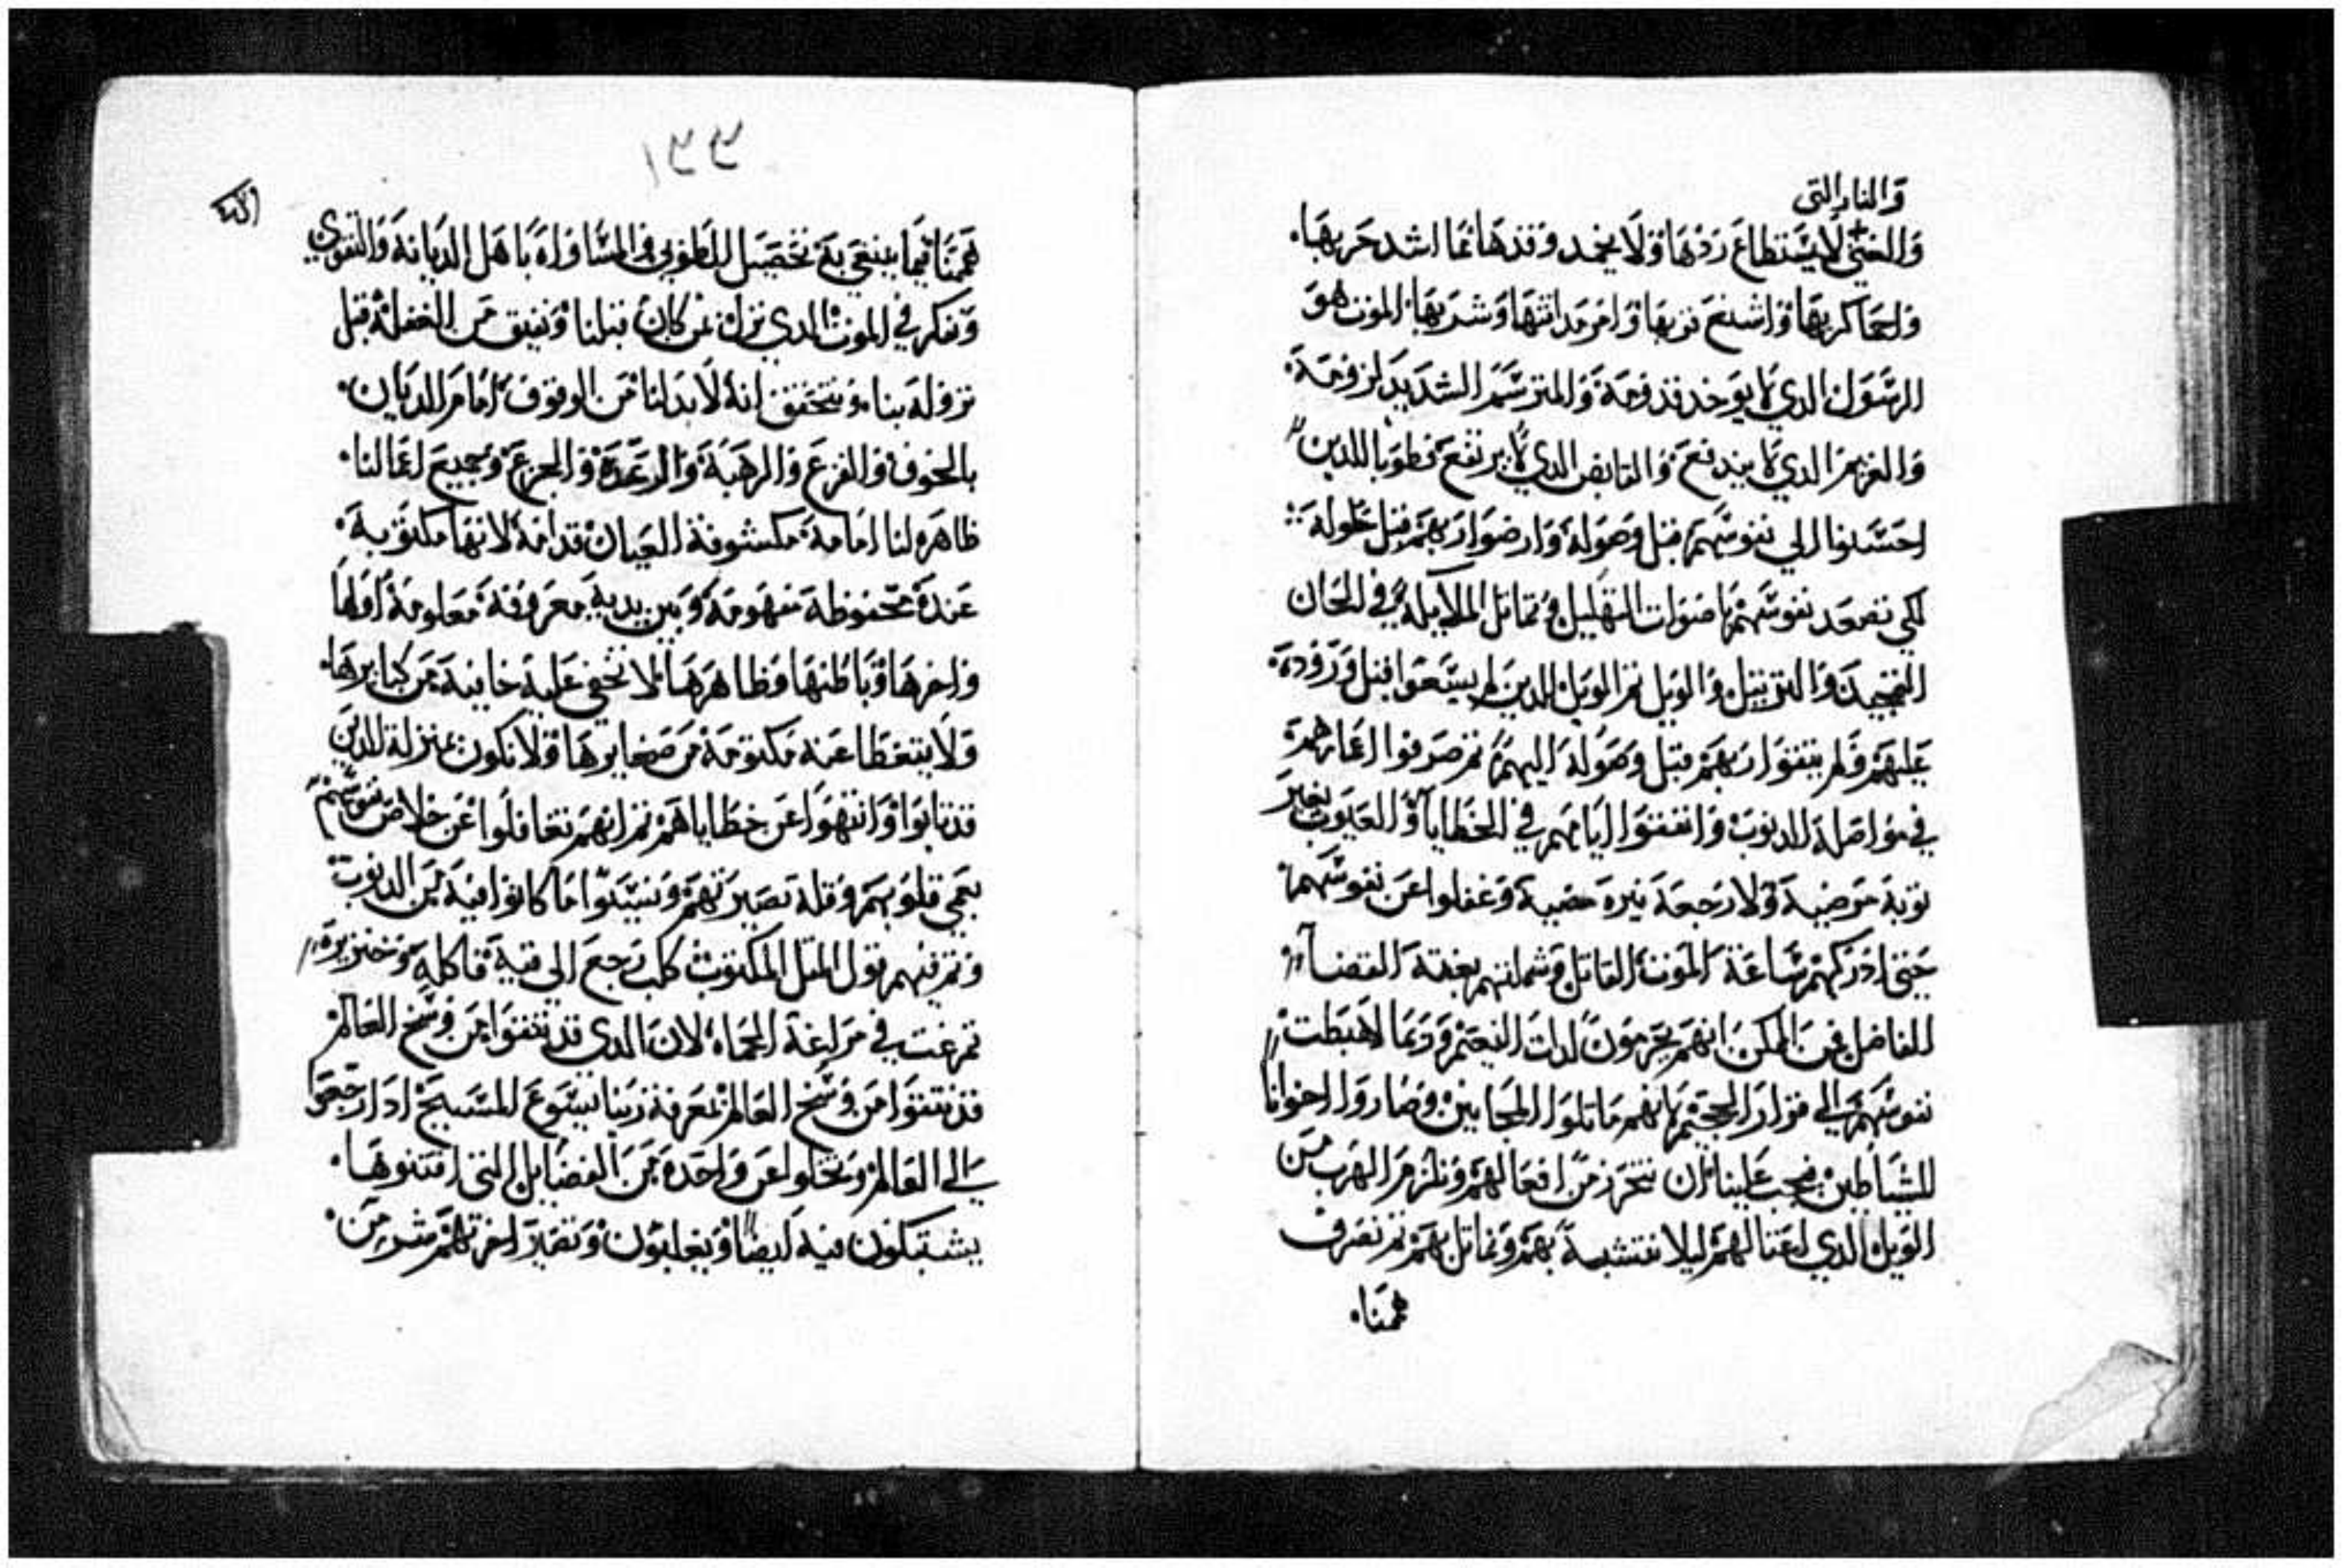 والنار التى
والعتى لا يستطاع ردها ولا يخمد وقدها فما اشد حربها.
واحما كربها واشنع قربها وامر مداقتها وشربها. الموت هو
الرسول الدي لا يوخد قدومه والمترسم الشديد لزومه.
والغريم الدي لا يندفع والقابض الدي لا يرتفع فطوبا للدين
احسنوا الي نفوسهم قبل وصوله وارضوا ربهم قبل حلوله
لكي تصعد نفوسهم باصوات التهليل وتماتل الملايكه في الحان
التمجيد والترتيل والويل تم الويل للدين لم يسعوا قبل وروده
عليهم ولم يتقوا ربهم قبل وصوله اليهم تم صرفوا اعمارهم
في مواصلة الدنوب وانفقوا ايامهم في الخطايا والعيوب بغير
توبة مرضية ولا رجعة نيرة مضية وغفلوا عن نفوسهم
حتى ادركتهم ساعة الموت القاتل وشملتهم بغتة القضآ
الفاضل فمن الممكن انهم يحرمون لدات النعيم وربما لاهبطت
نفوسهم الي قرار الجحيم لانهم ماتلوا المجانين وصاروا اخوانا
للشياطين فيجب علينا ان نتحرز من افعالهم ونلزم الهرب من
الويل الدي اعتالهم ليلا نتشبه بهم ونماتل بهم تم نصرف
همنا.
١٣٣
همنا فيما ينبغي به تحصيل الطوبي في المساواه باهل الديانه والتقوي
ونفكر في الموت الدي نزل بمن كان قبلنا ونفيق من الغفله قبل
نزوله بنا. ونتحقق انه لا بد لنا من الوقوف امام الديان.
بالخوف والفزع والرهبة والرعدة والجزع وجميع اعمالنا.
ظاهره لنا امامه مكشوفة العيان قدامه لانها مكتوبه.
عنده محفوظة مفهومه وبين يديه معروفة معلومة اولها
واخرها وباطنها وظاهرها لا تخفي عليه خافيه من كبايرها.
ولا يتغطا عنه مكتومة من صغايرها ولا نكون بمنزلة الدين
قد تابوا وانتهوا عن خطاياهم تم انهم تغافلوا عن خلاص نفوسهم
بعمي قلوبهم وقلة تصبرتهم ونسيدوا ما كانوا فيه من الدنوب
وتم فيهم قول المتل المكتوب كلب رجع الي قيه فاكله وخنزيره
تمرغت في مراغة الحماه لان الدي قد تنقوا من وسخ العالم
قد تنقوا من وسخ العالم بمعرفة ربنا يسوع المسيح ادا رجعوا
الي العالم وتخلوا عن واحدة من الفضايل التي اقتنوها.
يشتبكون فيه ايضا ويغلبون وتصير اخرتهم شر من.